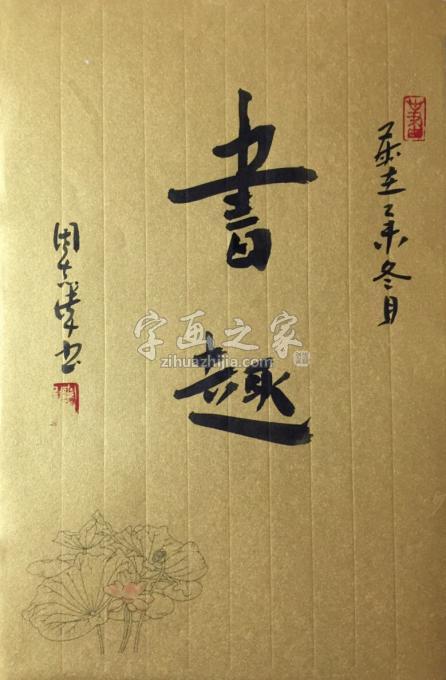 岁在乙未冬月
書趣
周志峰书
字画之家
zihuazhijia.com